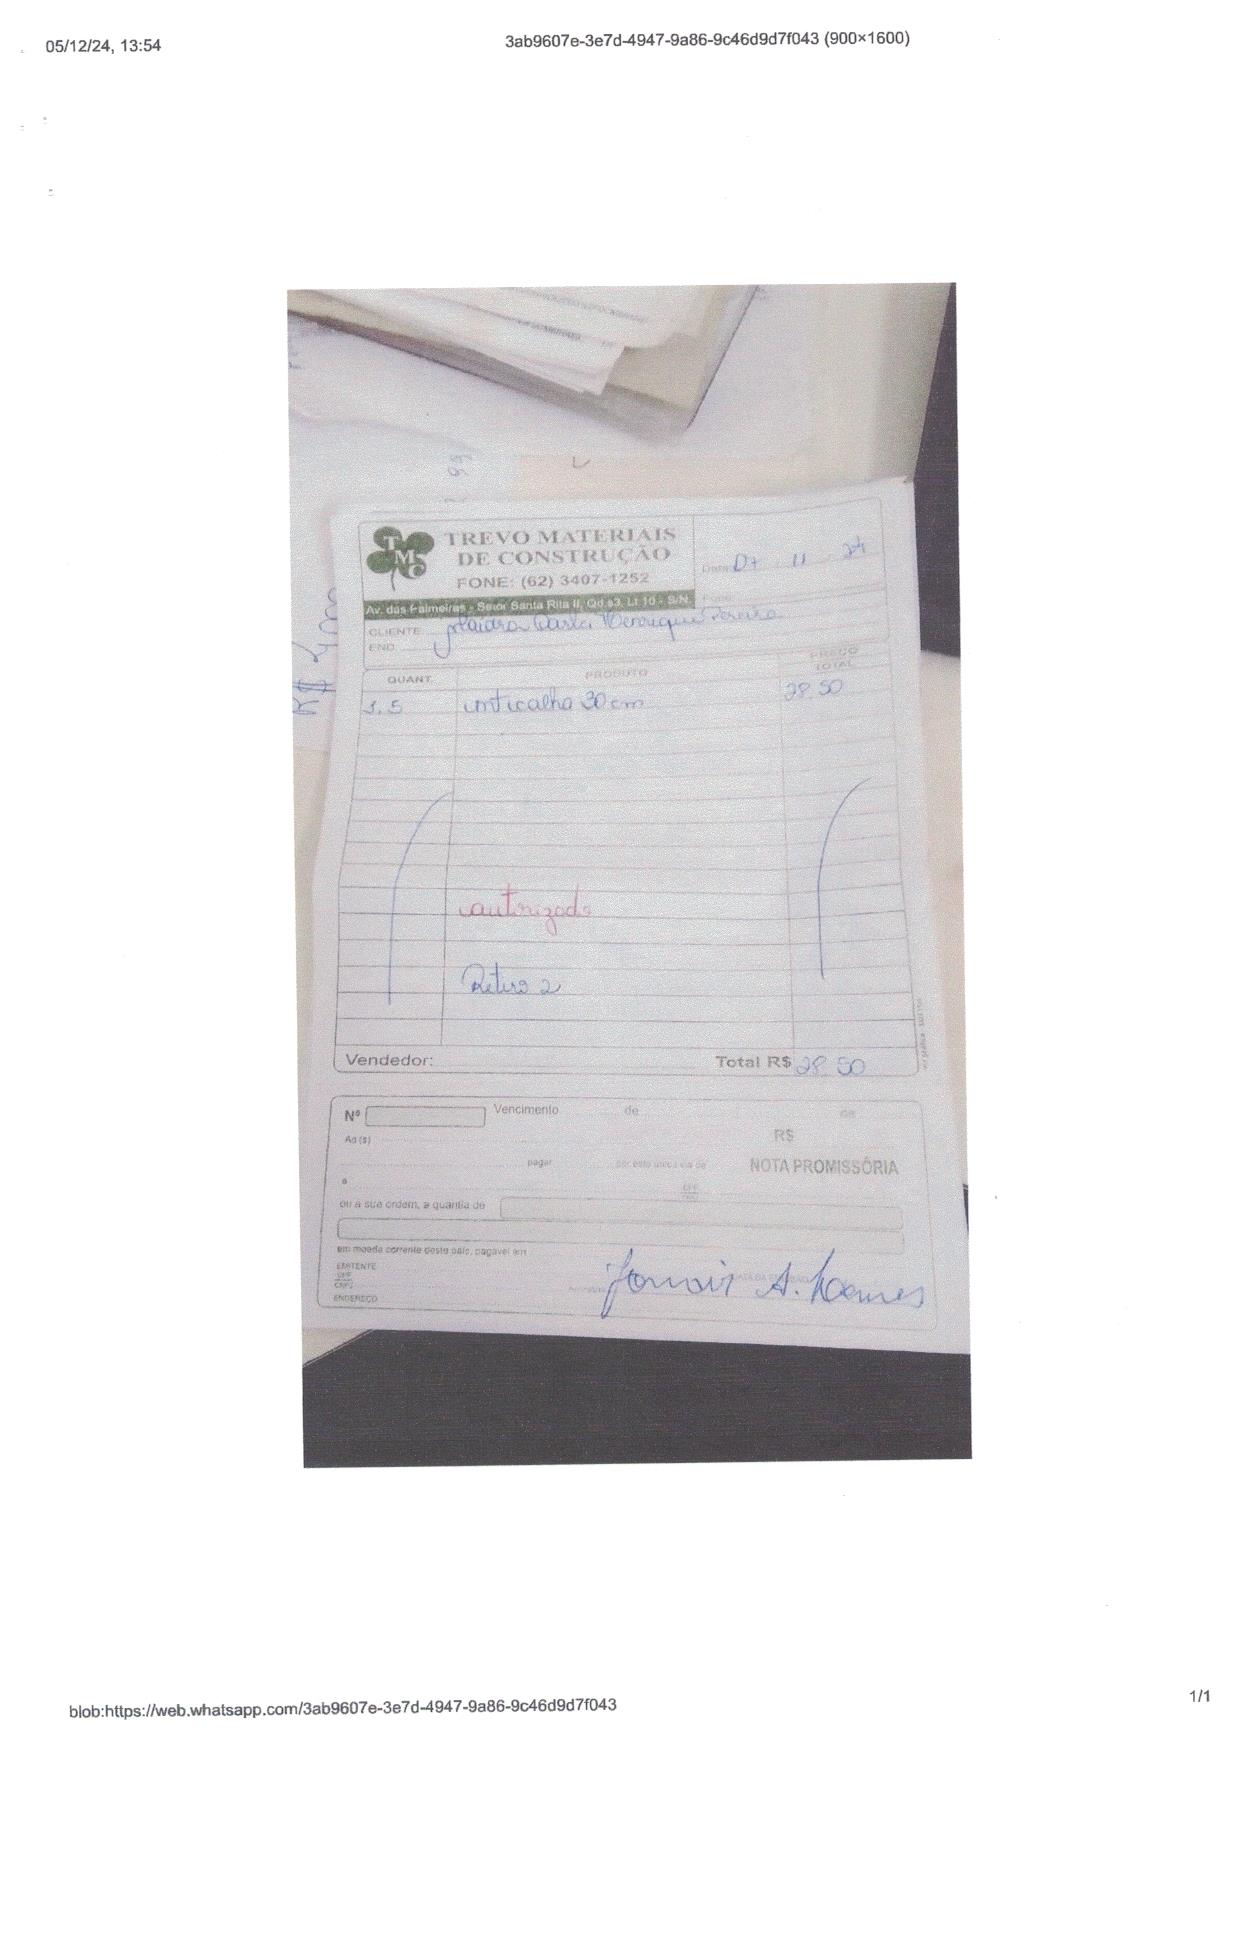 05/12/24, 13:54
3ab9607e-3e7d-4947-9a86-9c46d9d7f043 (900×1600)
TMC
TREVO MATERIAIS
DE CONSTRUÇÃO
FONE: (62) 3407-1252
Av. das Palmeiras - Setor Santa Rita II, Qd 53, Lt 10 - S/N
Data 11 24
CLIENTE Carla Henrique Pereira
END.
QUANT. PRODUTO PREÇO TOTAL
1,5 30 cm 28 50
autorizado
Retiro 2
Vendedor: Total R$ 28 50
Nº Vencimento de de
R$
Ao(s)
pagar por esta única via de NOTA PROMISSÓRIA
a
CPF
ou à sua ordem, a quantia de
em moeda corrente deste país, pagável em
EMITENTE
CPF
CNPJ
ENDEREÇO
A.
blob:https://web.whatsapp.com/3ab9607e-3e7d-4947-9a86-9c46d9d7f043
1/1